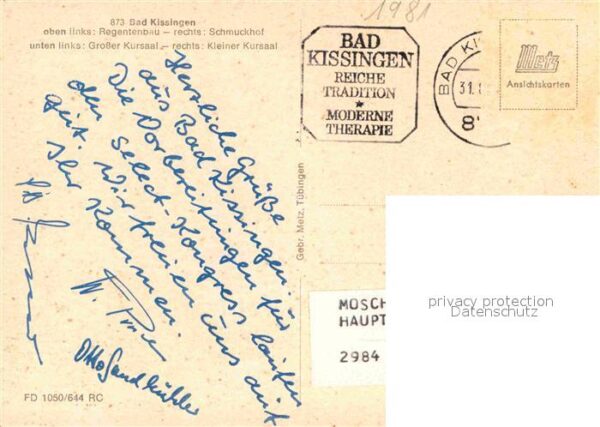 1981
873 Bad Kissingen
oben links: Regentenbau — rechts: Schmuckhof
unten links: Großer Kursaal — rechts: Kleiner Kursaal
BAD
KISSINGEN
REICHE
TRADITION
★
MODERNE
THERAPIE
BAD KI
31.
8
Metz
Ansichtskarten
Herzliche Grüße
aus Bad Kissingen.
Die Vorbereitungen für
den Select-Kongress laufen
gut. Wir freuen uns auf
Ihr Kommen.
Otto Sandkühler
Gebr. Metz, Tübingen
MOSCH
HAUPT
2984
privacy protection
Datenschutz
FD 1050/644 RC